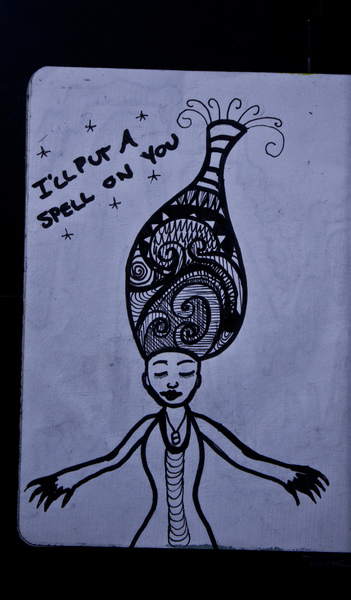 I'LL PUT A
SPELL ON YOU